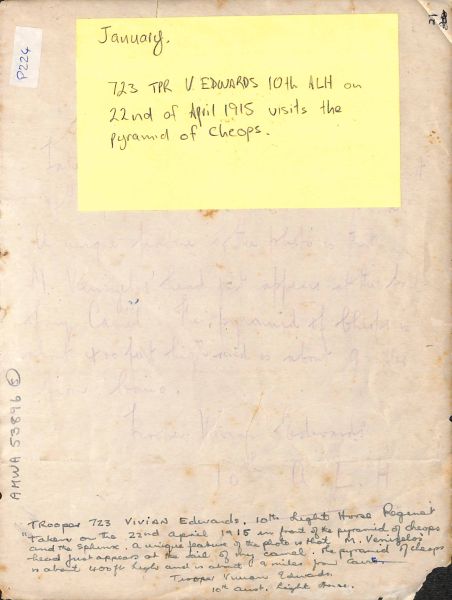 21
P224
January.
723 TPR V. EDWARDS 10th ALH on
22nd of April 1915 visits the
pyramid of Cheops.
A unique feature of the photo is that
M. Venizelos' head just appears at the tail
of my Camel. The pyramid of Cheops is
about 400 feet high and is about 9 miles
from Cairo.
Trooper Vivian Edwards
10th A. L. H
AMWA 53896 ©
TROOPER 723 VIVIAN Edwards. 10th Light Horse Regiment
"Taken on the 22nd April 1915 in front of the pyramid of cheops
and the Sphinx. a unique feature of the photo is that M. Venizelos'
head just appears at the tail of my camel. The pyramid of cheops
is about 400ft high and is about 9 miles from Cairo
Trooper Vivian Edwards.
10th Aust. Light Horse.